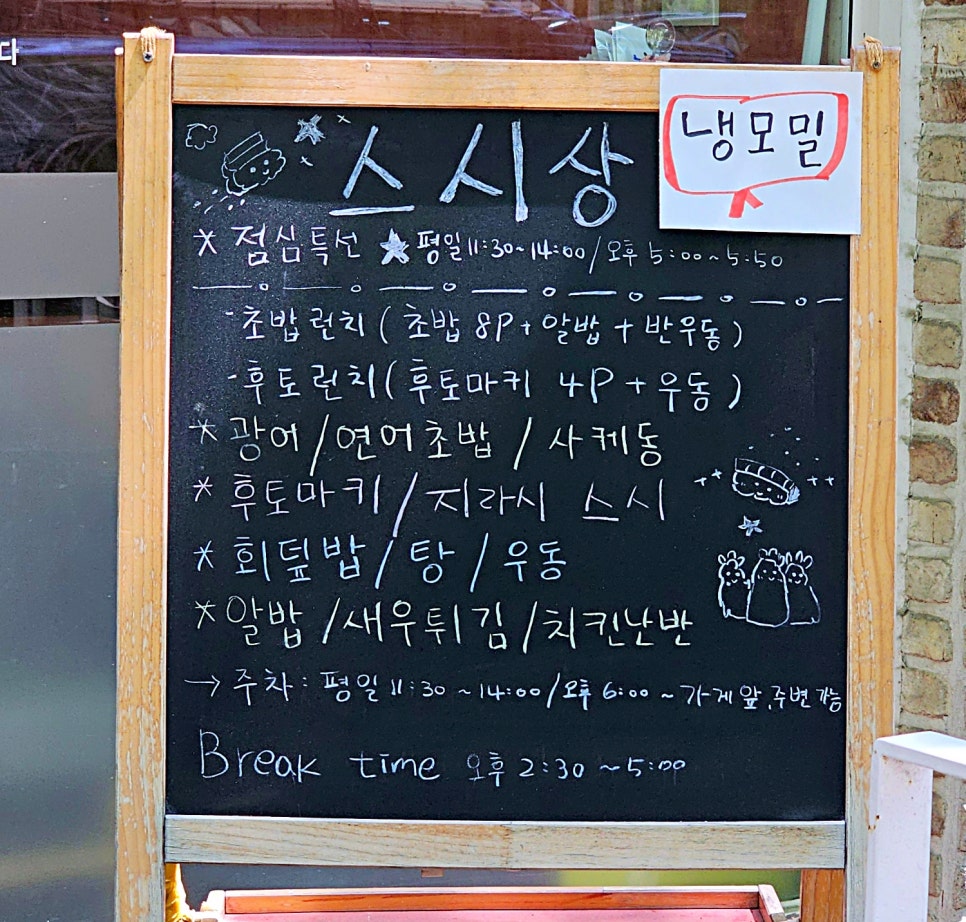 다
냉모밀
스시상
* 점심특선 ★ 평일 11:30~14:00 / 오후 5:00~5:50
- 초밥런치 ( 초밥 8P + 알밥 + 반우동 )
- 후토런치 ( 후토마키 4P + 우동 )
* 광어 / 연어초밥 / 사케동
* 후토마키 / 지라시 스시
* 회덮밥 / 탕 / 우동
* 알밥 / 새우튀김 / 치킨난반
→ 주차 : 평일 11:30 ~14:00 / 오후 6:00 ~ 가게 앞, 주변 가능
Break time 오후 2:30 ~5:00